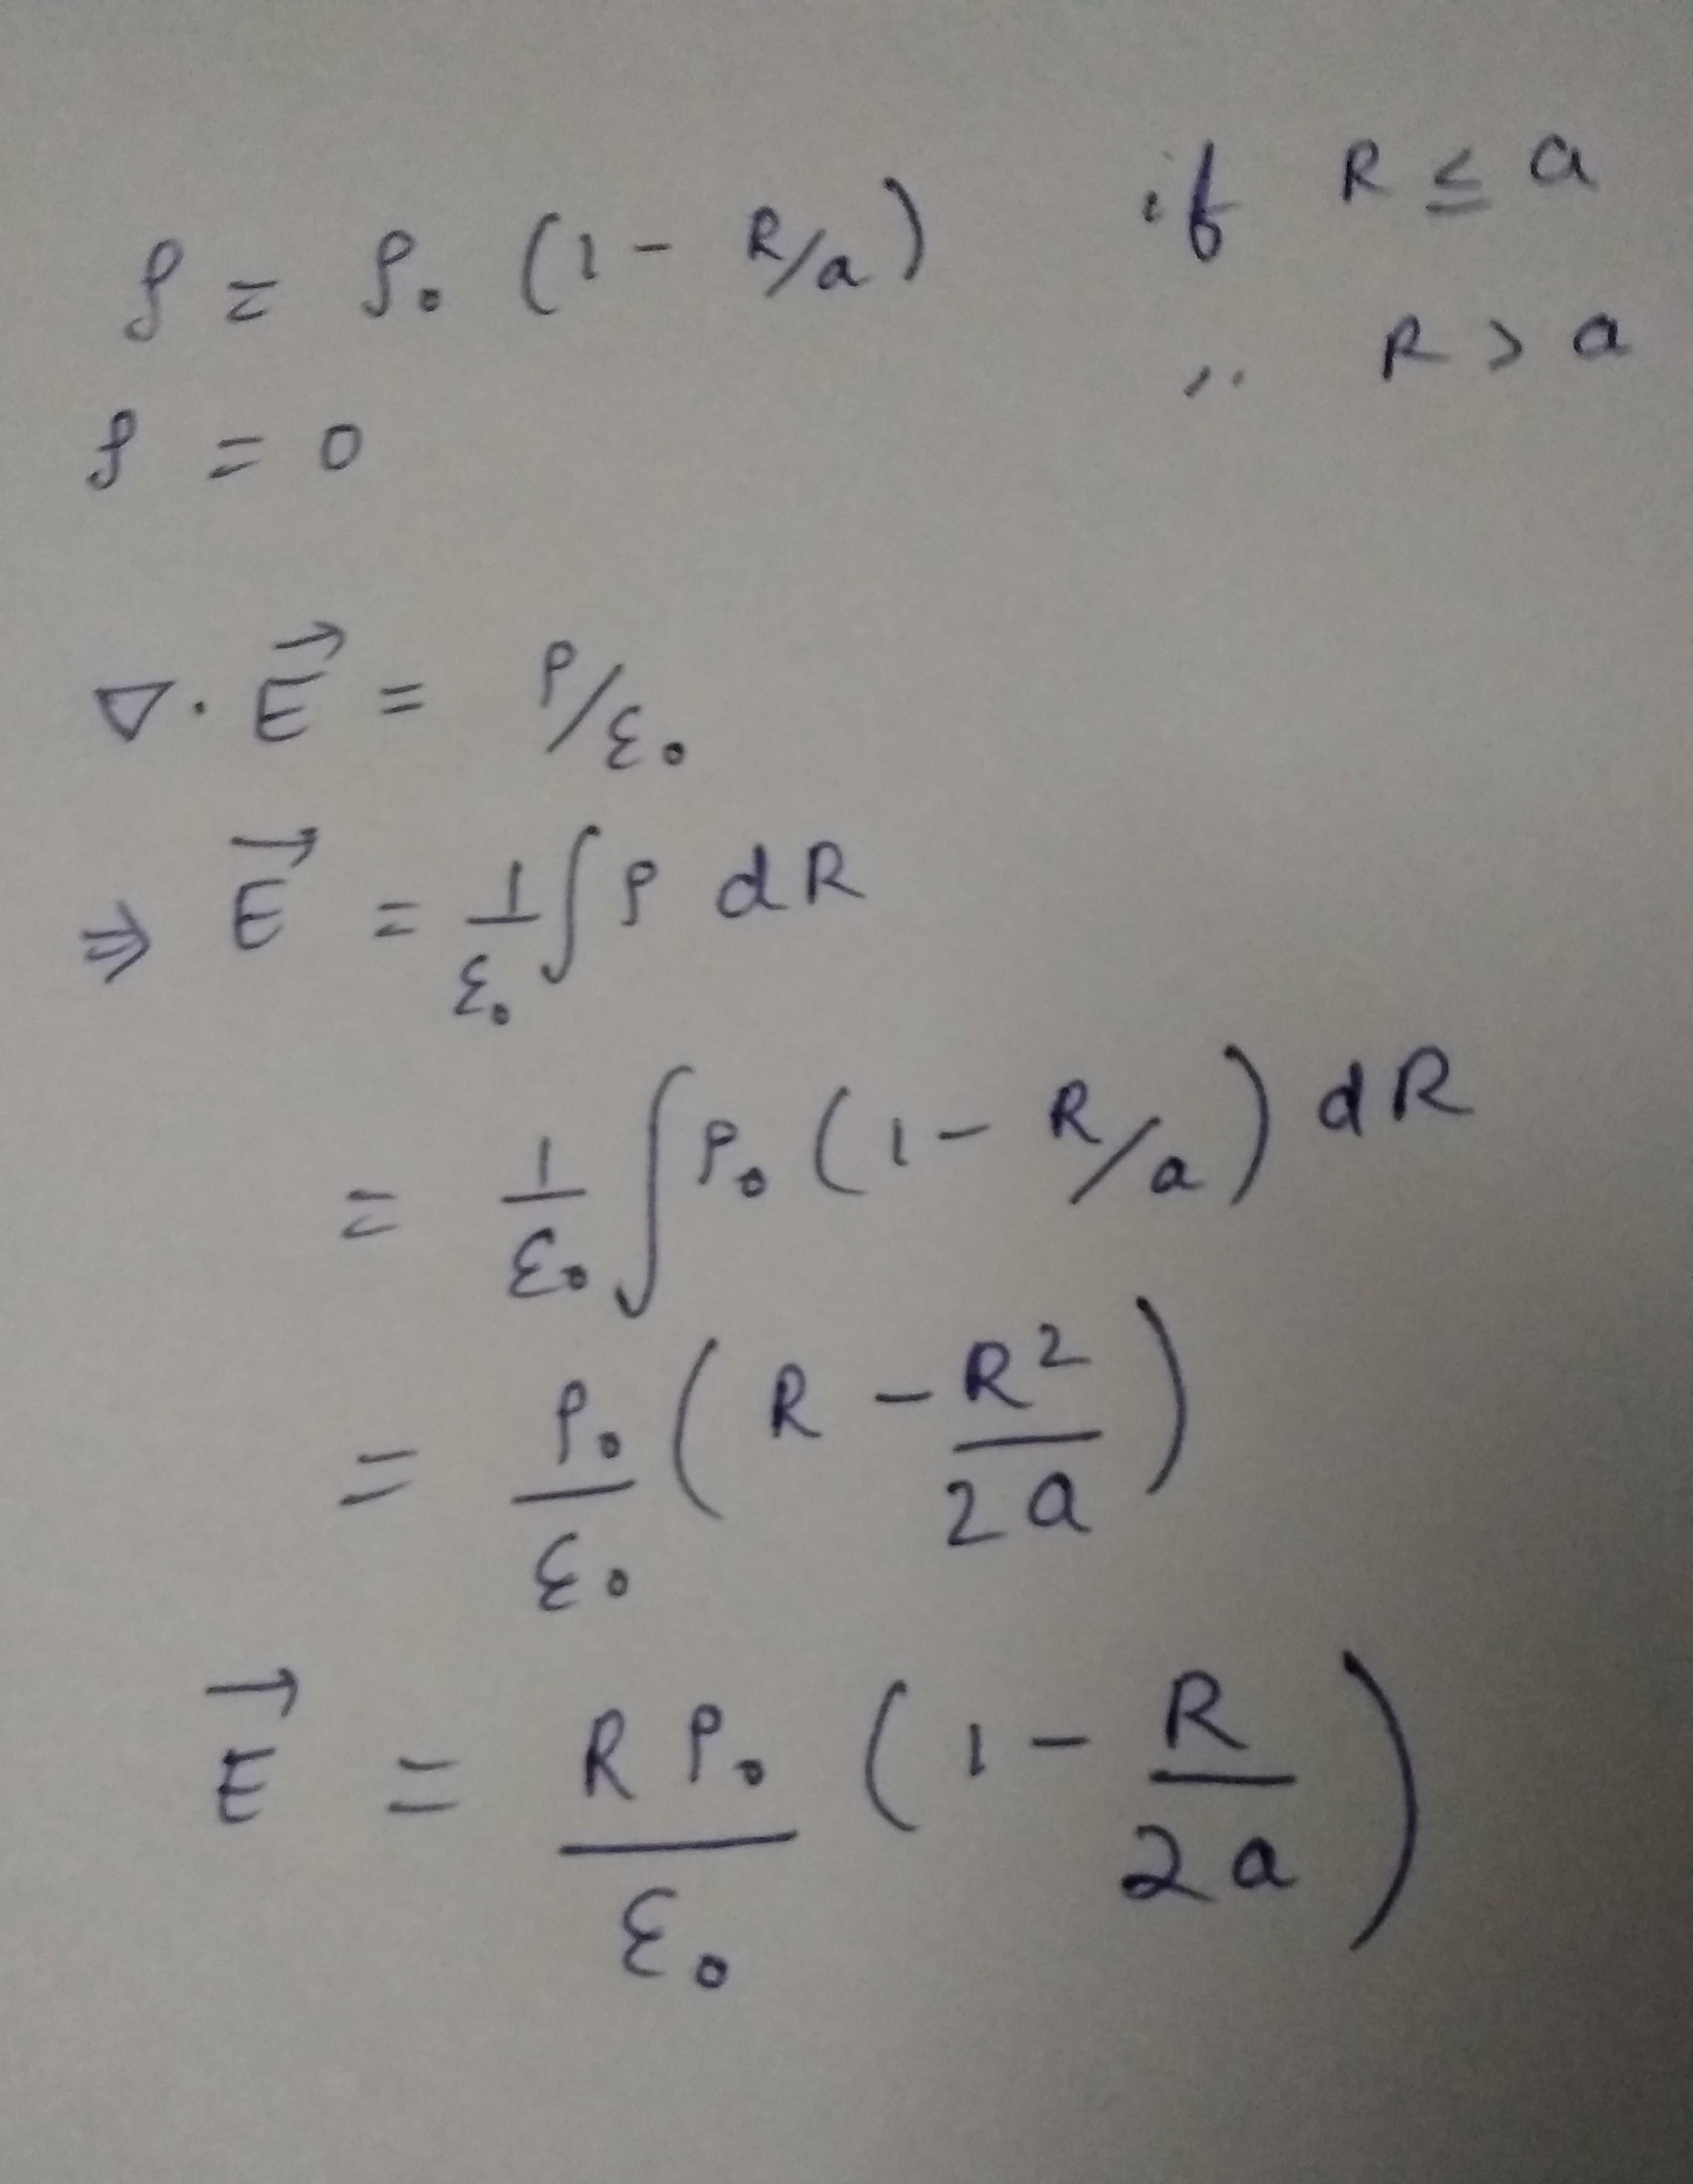 ρ = ρ₀ (1 - R/a) if R ≤ a
ρ = 0 ,, R > a
∇. E⃗ = ρ/ε₀
⇒ E⃗ = 1/ε₀ ∫ ρ dR
= 1/ε₀ ∫ ρ₀ (1 - R/a) dR
= ρ₀/ε₀ (R - R²/2a)
E⃗ = Rρ₀/ε₀ (1 - R/2a)